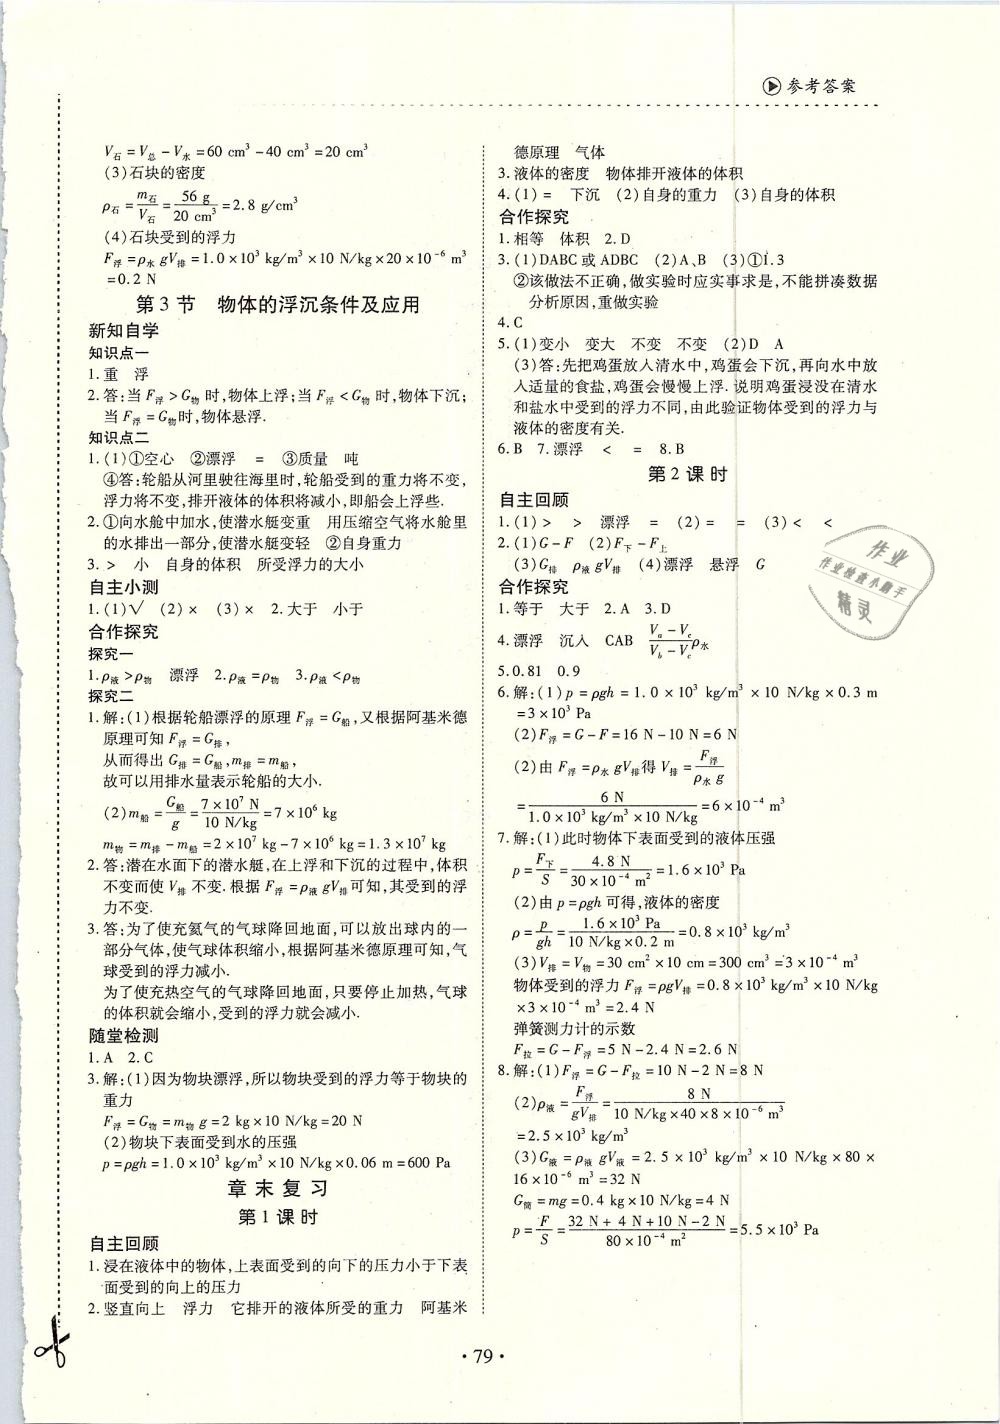 参考答案
V石=V总-V水=60 cm³-40 cm³=20 cm³
(3)石块的密度
ρ石=m石/V石=56 g/20 cm³=2.8 g/cm³
(4)石块受到的浮力
F浮=ρ水gV排=1.0×10³ kg/m³×10 N/kg×20×10⁻⁶ m³
=0.2 N
第3节 物体的浮沉条件及应用
新知自学
知识点一
1.重 浮
2.答:当F浮>G物时,物体上浮;当F浮<G物时,物体下沉;
当F浮=G物时,物体悬浮.
知识点二
1.(1)①空心 ②漂浮 = ③质量 吨
④答:轮船从河里驶往海里时,轮船受到的重力将不变,
浮力将不变,排开液体的体积将减小,即船会上浮些.
2.①向水舱中加水,使潜水艇变重 用压缩空气将水舱里
的水排出一部分,使潜水艇变轻 ②自身重力
3.> 小 自身的体积 所受浮力的大小
自主小测
1.(1)√ (2)× (3)× 2.大于 小于
合作探究
探究一
1.ρ液>ρ物 漂浮 2.ρ液=ρ物 3.ρ液<ρ物
探究二
1.解:(1)根据轮船漂浮的原理F浮=G船,又根据阿基米德
原理可知F浮=G排,
从而得出G排=G船,m排=m船,
故可以用排水量表示轮船的大小.
(2)m船=G船/g=7×10⁷ N/10 N/kg=7×10⁶ kg
m物=m排-m船=2×10⁷ kg-7×10⁶ kg=1.3×10⁷ kg
2.答:潜在水面下的潜水艇,在上浮和下沉的过程中,体积
不变而使V排不变.根据F浮=ρ液gV排可知,其受到的浮
力不变.
3.答:为了使充氦气的气球降回地面,可以放出球内的一
部分气体,使气球体积缩小,根据阿基米德原理可知,气
球受到的浮力减小.
为了使充热空气的气球降回地面,只要停止加热,气球
的体积就会缩小,受到的浮力就会减小.
随堂检测
1.A 2.C
3.解:(1)因为物块漂浮,所以物块受到的浮力等于物块的
重力
F浮=G物=m物g=2 kg×10 N/kg=20 N
(2)物块下表面受到水的压强
p=ρgh=1.0×10³ kg/m³×10 N/kg×0.06 m=600 Pa
章末复习
第1课时
自主回顾
1.浸在液体中的物体,上表面受到的向下的压力小于下表
面受到的向上的压力
2.竖直向上 浮力 它排开的液体所受的重力 阿基米
德原理 气体
3.液体的密度 物体排开液体的体积
4.(1)= 下沉 (2)自身的重力 (3)自身的体积
合作探究
1.相等 体积 2.D
3.(1)DABC或ADBC (2)A、B (3)①1.3
②该做法不正确,做实验时应实事求是,不能拼凑数据
分析原因,重做实验
4.C
5.(1)变小 变大 不变 不变 (2)D A
(3)答:先把鸡蛋放入清水中,鸡蛋会下沉,再向水中放
入适量的食盐,鸡蛋会慢慢上浮.说明鸡蛋浸没在清水
和盐水中受到的浮力不同,由此验证物体受到的浮力与
液体的密度有关.
6.B 7.漂浮 < = 8.B
第2课时
自主回顾
1.(1)> > 漂浮 = (2)= = (3)< <
2.(1)G-F (2)F下-F上
(3)G排 ρ液gV排 (4)漂浮 悬浮 G
合作探究
1.等于 大于 2.A 3.D
4.漂浮 沉入 CAB (Va-Vc)/(Vb-Vc)ρ水
5.0.81 0.9
6.解:(1)p=ρgh=1.0×10³ kg/m³×10 N/kg×0.3 m
=3×10³ Pa
(2)F浮=G-F=16 N-10 N=6 N
(2)由F浮=ρ水gV排得V排=F浮/ρ水g
=6 N/1.0×10³ kg/m³×10 N/kg=6×10⁻⁴ m³
7.解:(1)此时物体下表面受到的液体压强
p=F下/S=4.8 N/30×10⁻⁴ m²=1.6×10³ Pa
(2)由p=ρgh可得,液体的密度
ρ=p/gh=1.6×10³ Pa/10 N/kg×0.2 m=0.8×10³ kg/m³
(3)V排=V物=30 cm²×10 cm=300 cm³=3×10⁻⁴ m³
物体受到的浮力F浮=ρgV排=0.8×10³ kg/m³×10 N/kg
×3×10⁻⁴ m³=2.4 N
弹簧测力计的示数
F拉=G-F浮=5 N-2.4 N=2.6 N
8.解:(1)F浮=G-F拉=10 N-2 N=8 N
(2)ρ液=F浮/gV排=8 N/10 N/kg×40×8×10⁻⁶ m³
=2.5×10³ kg/m³
(3)G液=ρ液gV液=2.5×10³ kg/m³×10 N/kg×80×
16×10⁻⁶ m³=32 N
G筒=mg=0.4 kg×10 N/kg=4 N
p=F/S=32 N+4 N+10 N-2 N/80×10⁻⁴ m²=5.5×10³ Pa
作业
作业检查小助手
精灵
·79·